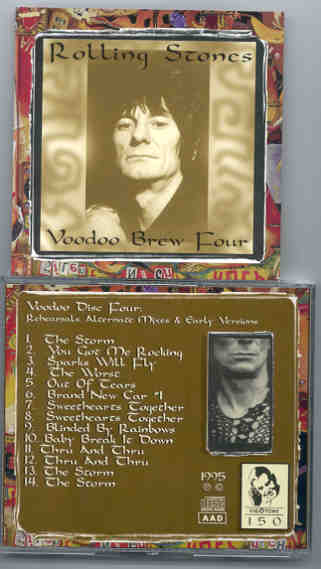 Rolling Stones
Voodoo Brew Four
Voodoo Disc Four:
Rehearsals, Alternate Mixes & Early Versions
1. The Storm
2. You Got Me Rocking
3. Sparks Will Fly
4. The Worst
5. Out Of Tears
6. Brand New Car #1
7. Sweethearts Together
8. Sweethearts Together
9. Blinded By Rainbows
10. Baby Break It Down
11. Thru And Thru
12. Thru And Thru
13. The Storm
14. The Storm
1995
AAD
VIGOTONE
150